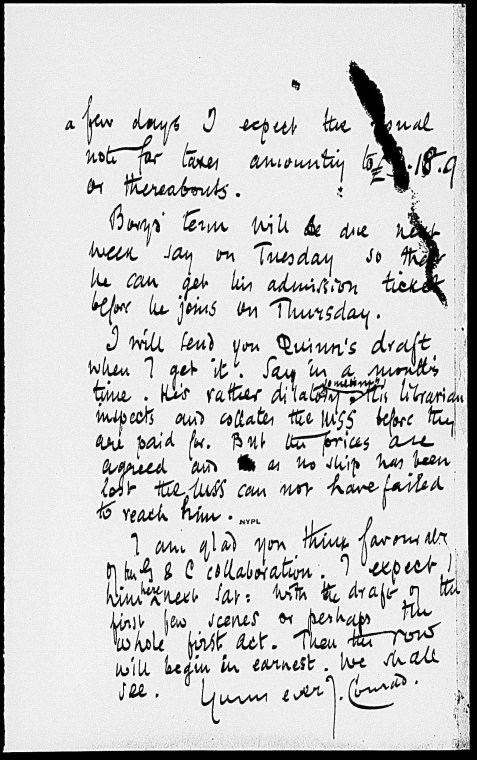 a few days I expect the usual
note for taxes amounting to £ .18.9
or thereabouts.
Borys' term will be due next
week say on Tuesday so that
he can get his admission ticket
before he joins on Thursday.
I will send you Quinn's draft
when I get it. Say in a month's
time. He's rather dilatory sometimes. His librarian
inspects and collates the MSS before they
are paid for. But the prices are
agreed and as no ship has been
lost the MSS can not have failed
to reach him.
NYPL
I am glad you think favourably
of the & C collaboration. I expect
him here next Sat: with the draft of the
first few scenes or perhaps the
whole first act. Then the row
will begin in earnest. We shall
see. Yours ever J. Conrad.